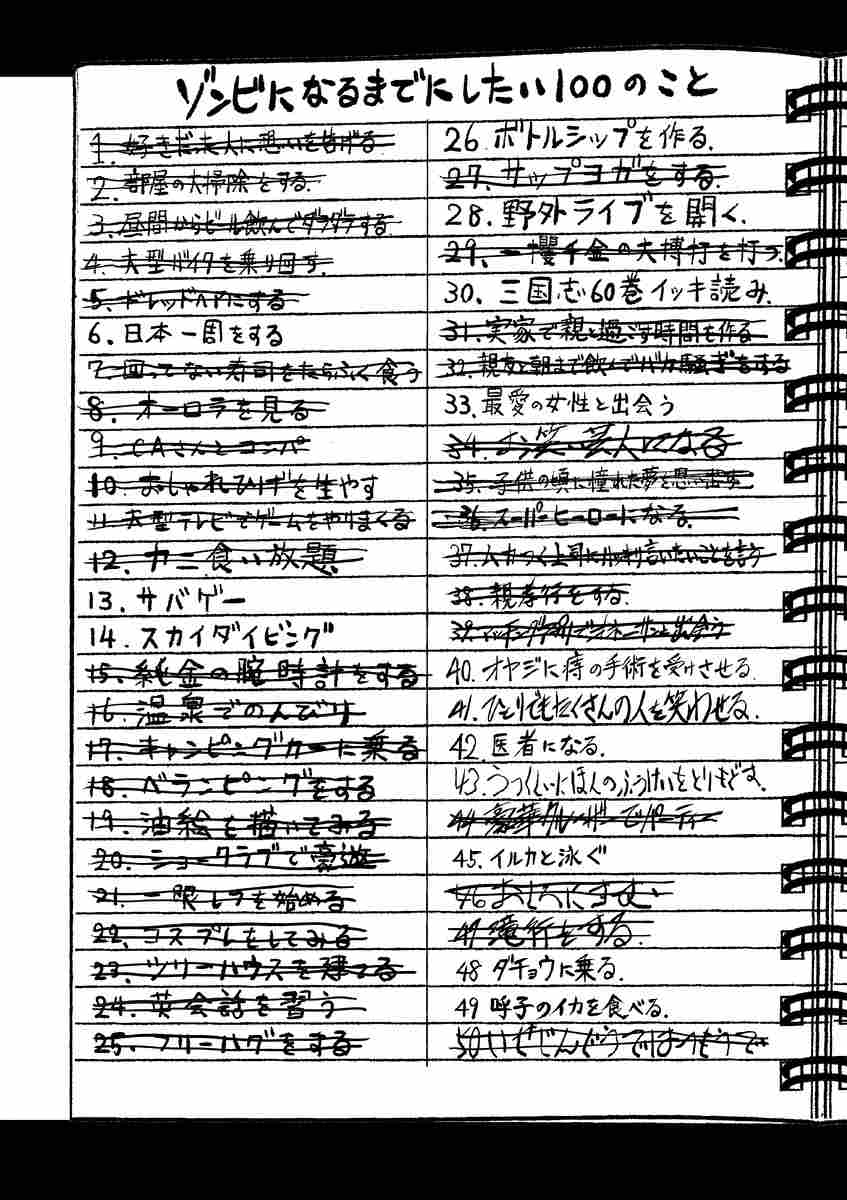 ゾンビになるまでにしたい100のこと
1. 好きだった人に想いを告げる
2. 部屋の大掃除をする.
3. 昼間からビール飲んでダラダラする
4. 大型バイクを乗り回す.
5. ドレッドヘアにする
6. 日本一周をする
7. 回ってない寿司をたらふく食う
8. オーロラを見る
9. CAさんとコンパ
10. おしゃれひげを生やす
11. 大型テレビでゲームをやりまくる
12. カニ食い放題
13. サバゲー
14. スカイダイビング
15. 純金の腕時計をする
16. 温泉でのんびり
17. キャンピングカーに乗る
18. ベランピングをする
19. 油絵を描いてみる
20. ショークラブで豪遊
21. 一眼レフを始める
22. コスプレをしてみる
23. ツリーハウスを建てる
24. 英会話を習う
25. フリーハグをする
26. ボトルシップを作る.
27. サップヨガをする
28. 野外ライブを開く.
29. 一攫千金の大博打を打つ.
30. 三国志60巻イッキ読み.
31. 実家で親と過ごす時間を作る
32. 親友と朝まで飲んでバカ騒ぎをする
33. 最愛の女性と出会う
34. お笑い芸人になる
35. 子供の頃に憧れた夢を思い出す
36. スーパーヒーローになる.
37. ムカつく上司にハッキリ言いたいことを言う
38. 親孝行をする.
39. と出会う
40. オヤジに痔の手術を受けさせる.
41. ひとりでもたくさんの人を笑わせる.
42. 医者になる.
43. うつくしいにほんのふうけいをとりもどす.
44 豪華クルーザーでパーティー
45. イルカと泳ぐ
46
47 をする.
48 ダチョウに乗る.
49 呼子のイカを食べる.
50 いせじんぐうではつもうで